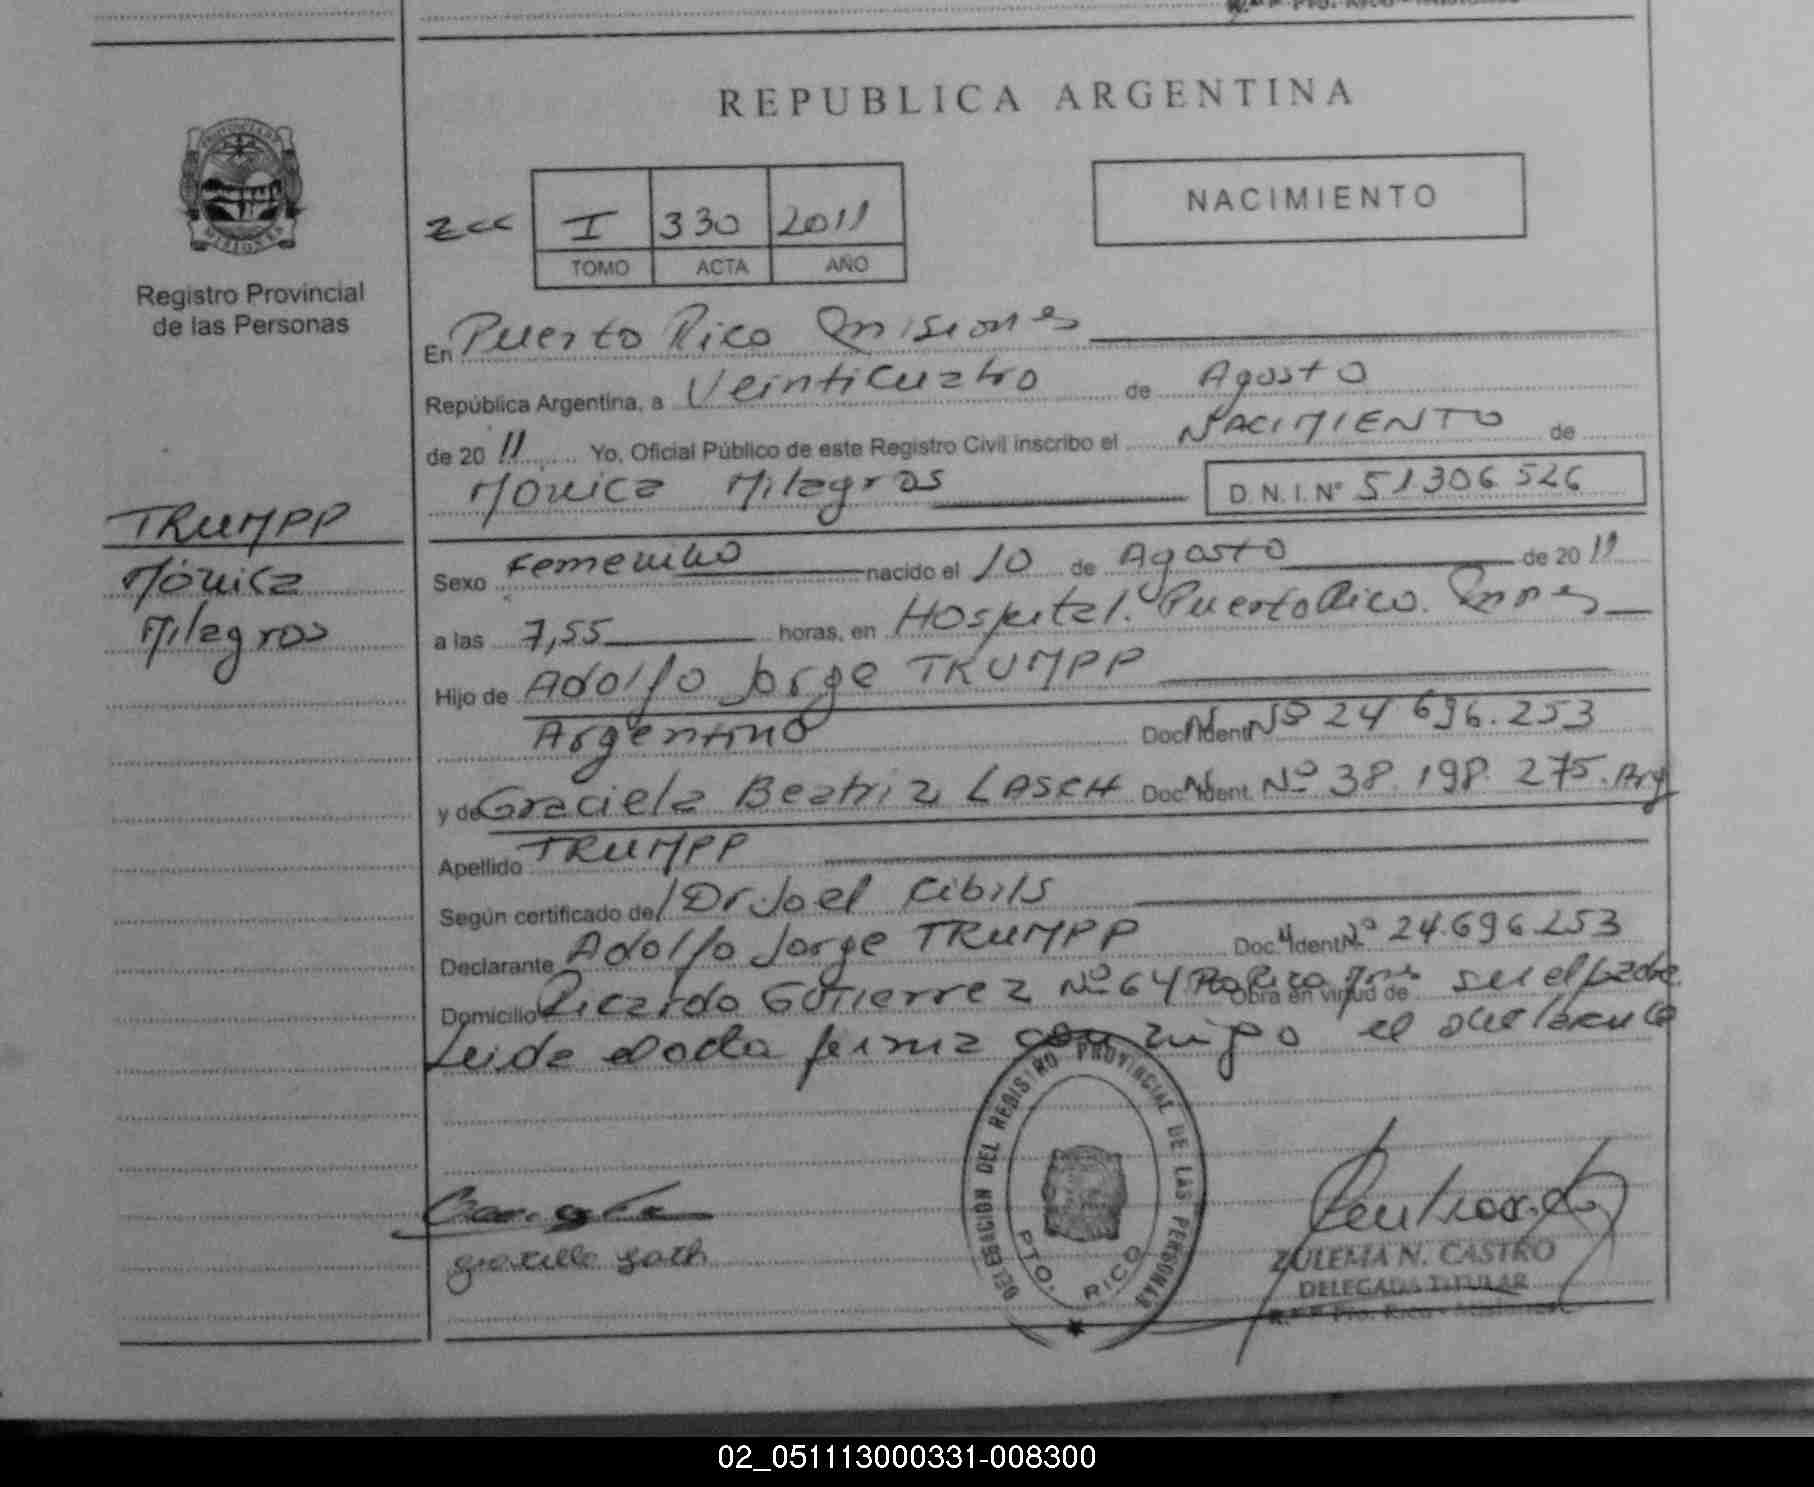 REPUBLICA ARGENTINA
NACIMIENTO
I 330 2011
TOMO ACTA AÑO
PROVINCIA DE MISIONES
Registro Provincial
de las Personas
En Puerto Rico Misiones
República Argentina, a Veinticuatro de Agosto
de 20 11 Yo, Oficial Público de este Registro Civil inscribo el NACIMIENTO de
Mónica Milagros D.N.I. Nº 51306526
TRUMPP
Mónica
Milagros
Sexo Femenino nacido el 10 de Agosto de 20 11
a las 7,55 horas, en Hospital. Puerto Rico. Mnes
Hijo de Adolfo Jorge TRUMPP
Argentino Doc. Ident. Nº 24 696.253
y de Graciela Beatriz LASCH Doc. Ident. Nº 38.198.275. Arg
Apellido TRUMPP
Según certificado de Dr. Joel Cibils
Declarante Adolfo Jorge TRUMPP Doc. Ident. Nº 24.696.253
Domicilio Ricardo Gutierrez Nº 64 Pto Rico Mnes Obra en virtud de ser el padre
Leida el acta firma conmigo el declarante
DELEGACION DEL REGISTRO PROVINCIAL DE LAS PERSONAS
PTO. RICO
ZULEMA N. CASTRO
DELEGADA TITULAR
Pto. Rico - Misiones
02_051113000331-008300